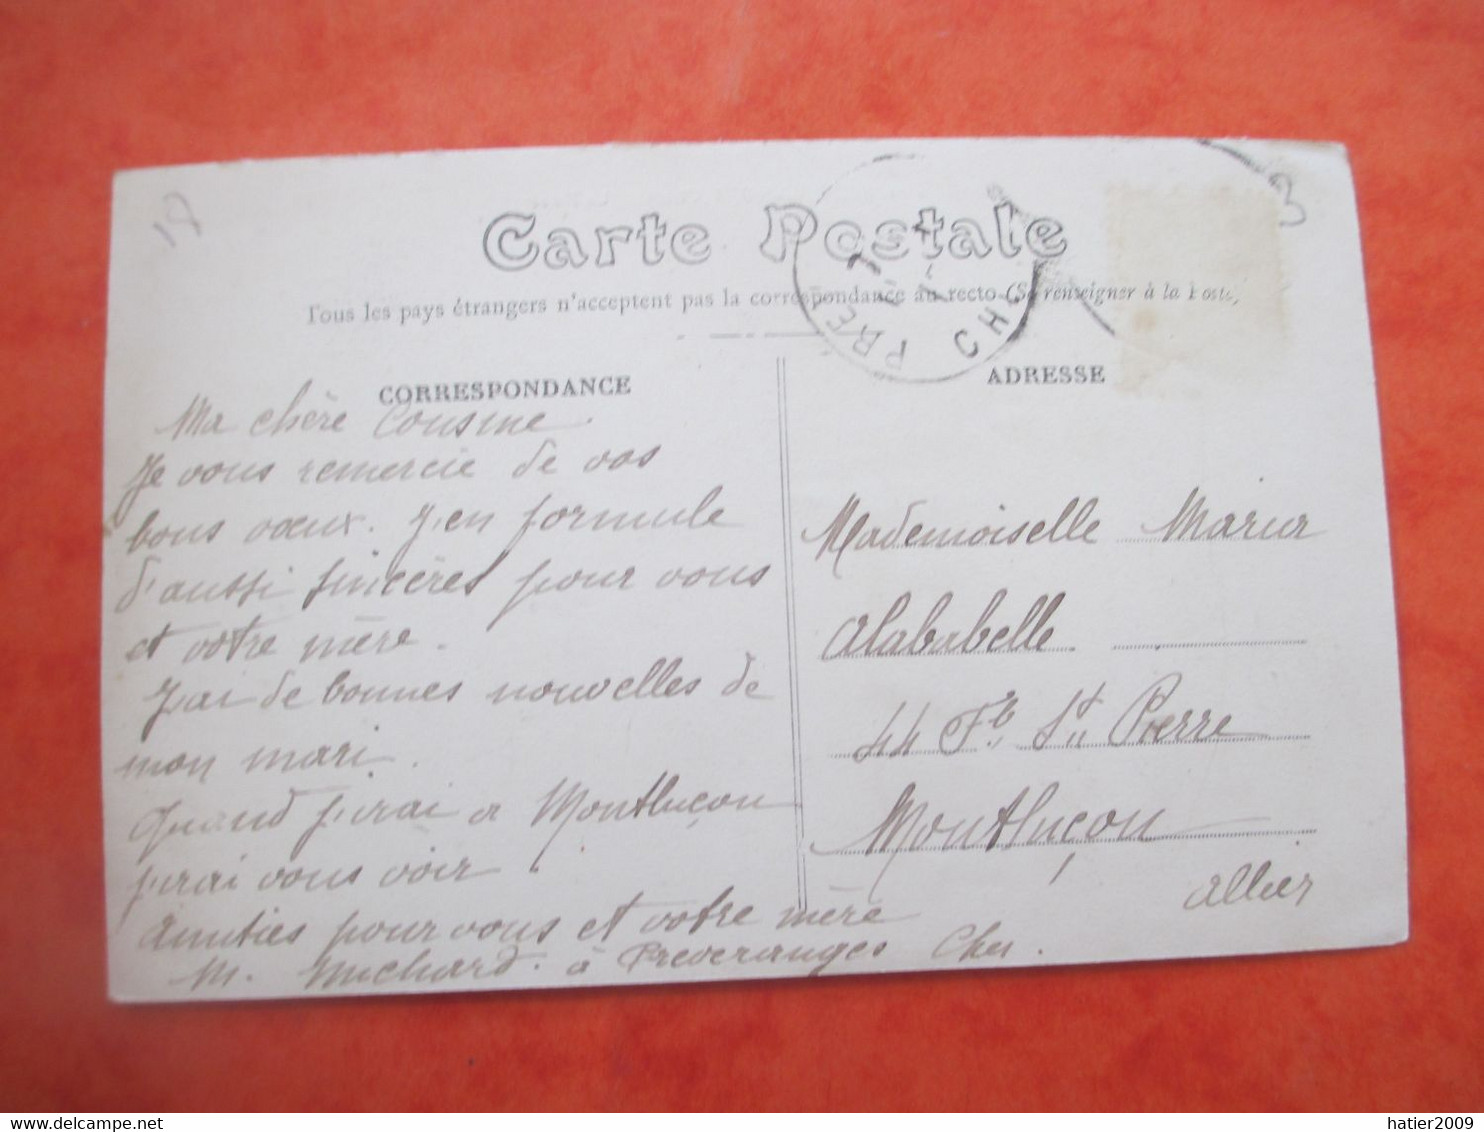 18
Carte Postale
Tous les pays étrangers n'acceptent pas la correspondance au recto (Se renseigner à la Poste)
PREV
CHE
CORRESPONDANCE
ADRESSE
Ma chère Cousine.
Je vous remercie de vos
bons vœux. J'en formule
d'aussi sincères pour vous
et votre mère.
J'ai de bonnes nouvelles de
mon mari.
Quand j'irai à Montluçon
j'irai vous voir.
Amitiés pour vous et votre mère
M. Michard. à Préveranges Cher.
Mademoiselle Maria
Alababelle
44 Fb St Pierre
Montluçon
Allier
hatier2009